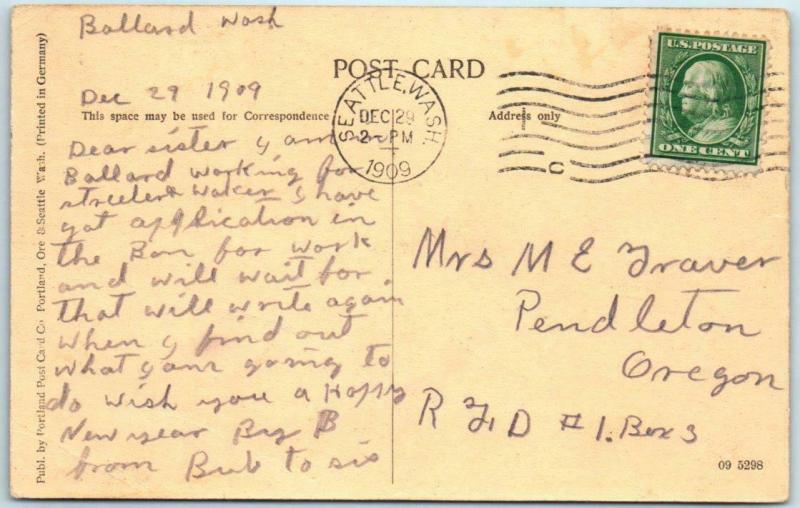 Ballard Wash
Dec 29 1909
POST CARD
This space may be used for Correspondence
Address only
Publ. by Portland Post Card Co. Portland, Ore & Seattle Wash. (Printed in Germany)
SEATTLE, WASH.
DEC 29
2- PM
1909
C
U.S. POSTAGE
ONE CENT
Dear sister y am in
Ballard working for
streeter Waker y have
got application in
the Bon for work
and will wait for
that will write again
when y find out
what yam going to
do wish you a Happy
New year By B
from Bub to sis
Mrs M E Traver
Pendleton
Oregon
R F D # 1. Box 3
09 5298